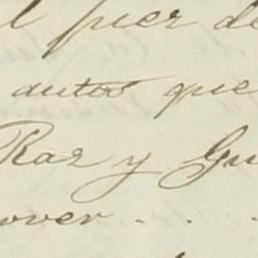 l juez de
autos que
Raz y Gu
over . . .